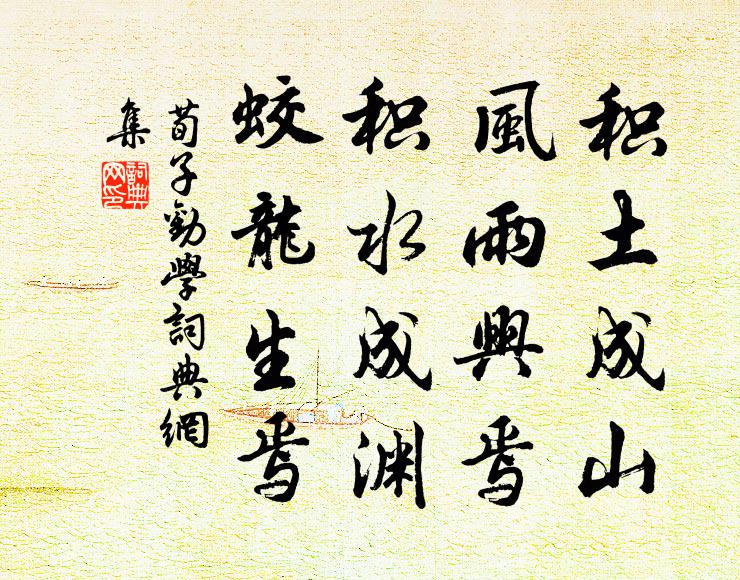 积土成山
風雨興焉
积水成渊
蛟龍生焉
荀子勸學詞典網
集
詞典
网印